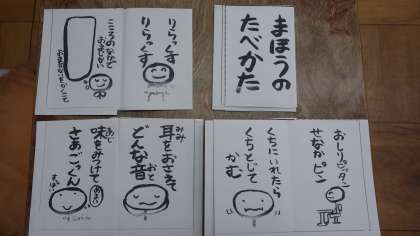 まほうの
たべかた
おしりピッタン
せなかピン
くちにいれたら
くちとじて
かむ
耳をおさえて
みみ
どんな音
おと
味をみつけて
あじ
さあごっくん
りらっくす
りらっくす
こころのなかで
おまじない